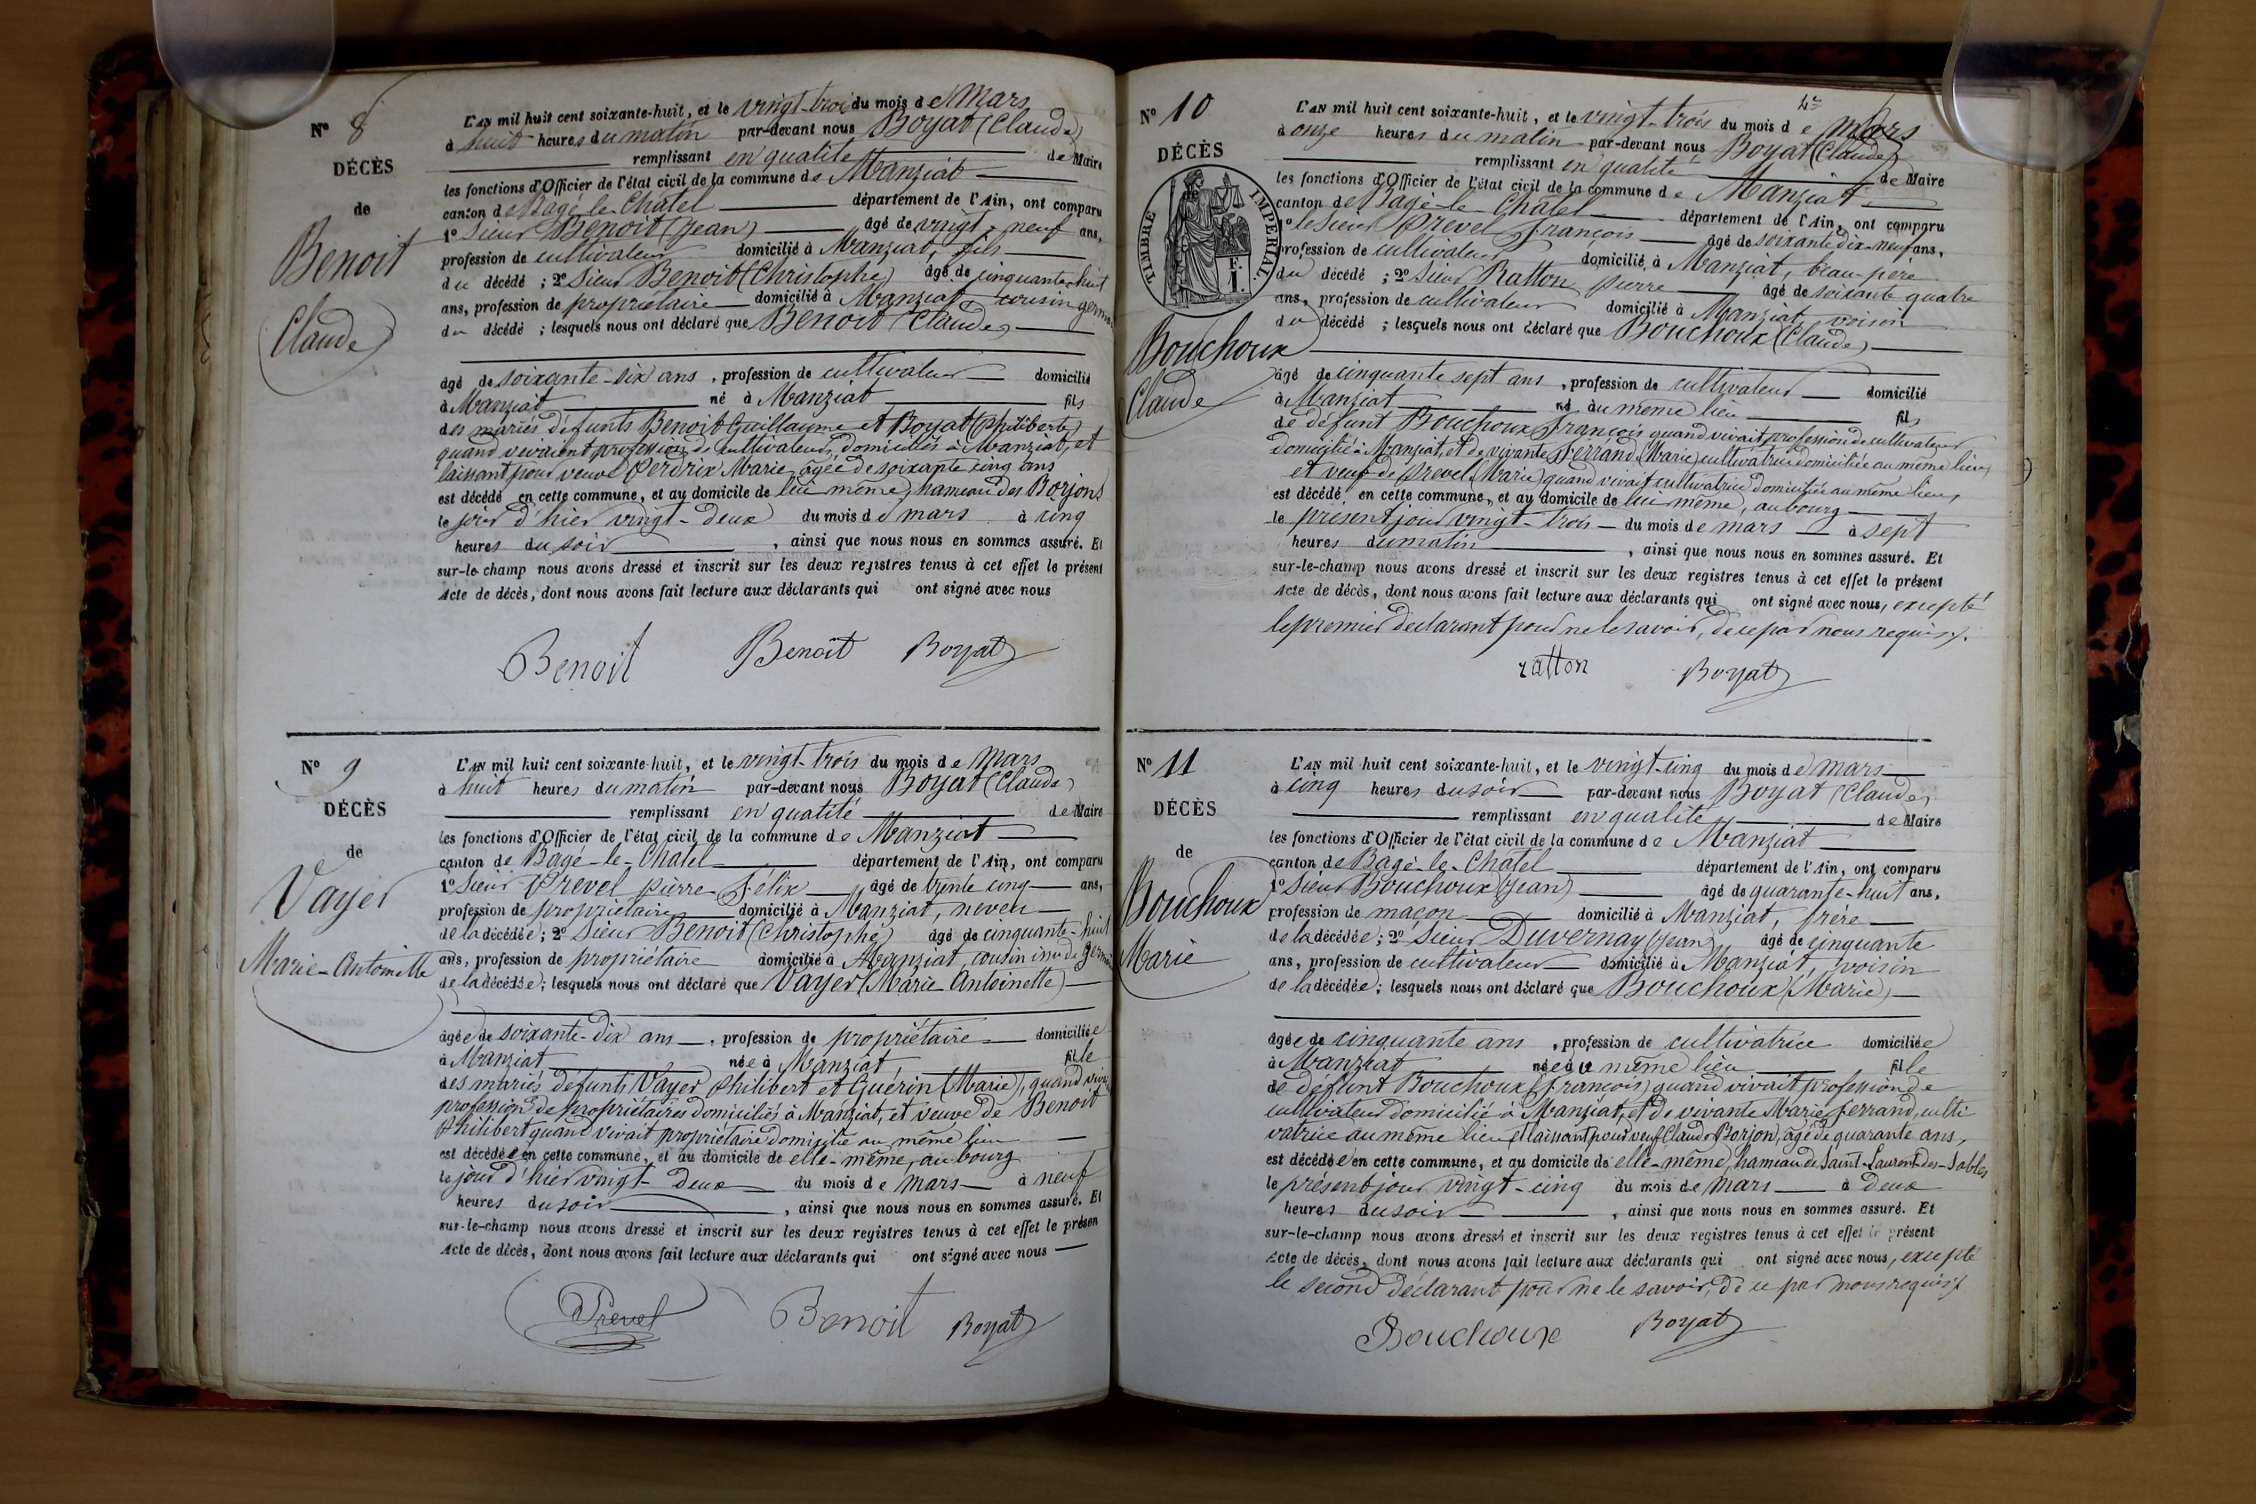 N° 8
DÉCÈS
de
Benoit
Claude
L'AN mil huit cent soixante-huit, et le vingt-trois du mois de Mars
à huit heures du matin par-devant nous Boyat (Claude)
remplissant en qualité de Maire
les fonctions d'Officier de l'état civil de la commune de Manziat
canton de Bagé-le-Chatel département de l'Ain, ont comparu
1° Sieur Benoit (Jean) âgé de vingt-neuf ans,
profession de cultivateur domicilié à Manziat, fils
du décédé ; 2° Sieur Benoit (Christophe) âgé de cinquante-huit
ans, profession de propriétaire domicilié à Manziat, cousin germain
du décédé ; lesquels nous ont déclaré que Benoit (Claude)
âgé de soixante-six ans, profession de cultivateur domicilié
à Manziat né à Manziat fils
des mariés défunts Benoit Guillaume et Boyat (Philiberte)
quand vivaient profession de cultivateurs, domiciliés à Manziat, et
laissant pour veuve Perdrix Marie, âgée de soixante cinq ans
est décédé en cette commune, et au domicile de lui même, hameau des Borjons
le jour d'hier vingt-deux du mois de mars à cinq
heures du soir, ainsi que nous nous en sommes assuré. Et
sur-le-champ nous avons dressé et inscrit sur les deux registres tenus à cet effet le présent
Acte de décès, dont nous avons fait lecture aux déclarants qui ont signé avec nous
Benoit Benoit Boyat
N° 9
DÉCÈS
de
Vayer
Marie-Antoinette
L'AN mil huit cent soixante-huit, et le vingt-trois du mois de Mars
à huit heures du matin par-devant nous Boyat (Claude)
remplissant en qualité de Maire
les fonctions d'Officier de l'état civil de la commune de Manziat
canton de Bagé-le-Chatel département de l'Ain, ont comparu
1° Sieur Prevel Pierre-Félix âgé de trente cinq ans,
profession de propriétaire domicilié à Manziat, neveu
de la décédée ; 2° Sieur Benoit (Christophe) âgé de cinquante-huit
ans, profession de propriétaire domicilié à Manziat, cousin issu de germain
de la décédée ; lesquels nous ont déclaré que Vayer (Marie Antoinette)
âgée de soixante-dix ans, profession de propriétaire domiciliée
à Manziat née à Manziat fille
des mariés défunts Vayer Philibert et Guérin (Marie), quand viv
profession de propriétaires domiciliés à Manziat, et veuve de Benoit
Philibert quand vivait propriétaire domicilié au même lieu
est décédée en cette commune, et au domicile de elle-même, au bourg
le jour d'hier vingt-deux du mois de mars à neuf
heures du soir, ainsi que nous nous en sommes assuré. Et
sur-le-champ nous avons dressé et inscrit sur les deux registres tenus à cet effet le présen
Acte de décès, dont nous avons fait lecture aux déclarants qui ont signé avec nous
Prevel Benoit Boyat
N° 10
DÉCÈS
TIMBRE IMPÉRIAL
Bouchoux
Claude
L'AN mil huit cent soixante-huit, et le vingt-trois du mois de Mars
à onze heures du matin par-devant nous Boyat (Claude)
remplissant en qualité de Maire
les fonctions d'Officier de l'état civil de la commune de Manziat
canton de Bagé-le-Chatel département de l'Ain, ont comparu
1° le Sieur Prevel François âgé de soixante dix-neuf ans,
profession de cultivateur domicilié à Manziat, beau-père
du décédé ; 2° Sieur Ratton Pierre âgé de soixante quatre
ans, profession de cultivateur domicilié à Manziat, voisin
du décédé ; lesquels nous ont déclaré que Bouchoux (Claude)
âgé de cinquante sept ans, profession de cultivateur domicilié
à Manziat né au même lieu fils
de défunt Bouchoux François quand vivait profession de cultivateur
domicilié à Manziat, et de vivante Ferrand (Marie) cultivatrice domiciliée au même lieu,
et veuf de Prevel (Marie) quand vivait cultivatrice domiciliée au même lieu,
est décédé en cette commune, et au domicile de lui même, au bourg
le présent jour vingt-trois du mois de mars à sept
heures du matin, ainsi que nous nous en sommes assuré. Et
sur-le-champ nous avons dressé et inscrit sur les deux registres tenus à cet effet le présent
Acte de décès, dont nous avons fait lecture aux déclarants qui ont signé avec nous, excepté
le premier déclarant pour ne le savoir, de ce par nous requis.
ratton Boyat
N° 11
DÉCÈS
de
Bouchoux
Marie
L'AN mil huit cent soixante-huit, et le vingt-cinq du mois de mars
à cinq heures du soir par-devant nous Boyat (Claude)
remplissant en qualité de Maire
les fonctions d'Officier de l'état civil de la commune de Manziat
canton de Bagé-le-Chatel département de l'Ain, ont comparu
1° Sieur Bouchoux (Jean) âgé de quarante-huit ans,
profession de maçon domicilié à Manziat, frère
de la décédée ; 2° Sieur Duvernay (Jean) âgé de cinquante
ans, profession de cultivateur domicilié à Manziat, voisin
de la décédée ; lesquels nous ont déclaré que Bouchoux (Marie)
âgée de cinquante ans, profession de cultivatrice domiciliée
à Manziat née à ce même lieu fille
de défunt Bouchoux (François) quand vivait profession de
cultivateur domicilié à Manziat, et de vivante Marie Ferrand, culti
vatrice au même lieu et laissant pour veuf Claude Borjon, âgé de quarante ans,
est décédée en cette commune, et au domicile de elle-même, hameau de Saint-Laurent-des-Sables
le présent jour vingt-cinq du mois de mars à deux
heures du soir, ainsi que nous nous en sommes assuré. Et
sur-le-champ nous avons dressé et inscrit sur les deux registres tenus à cet effet le présent
Acte de décès, dont nous avons fait lecture aux déclarants qui ont signé avec nous, excepté
le second déclarant pour ne le savoir, de ce par nous requis.
Bouchoux Boyat